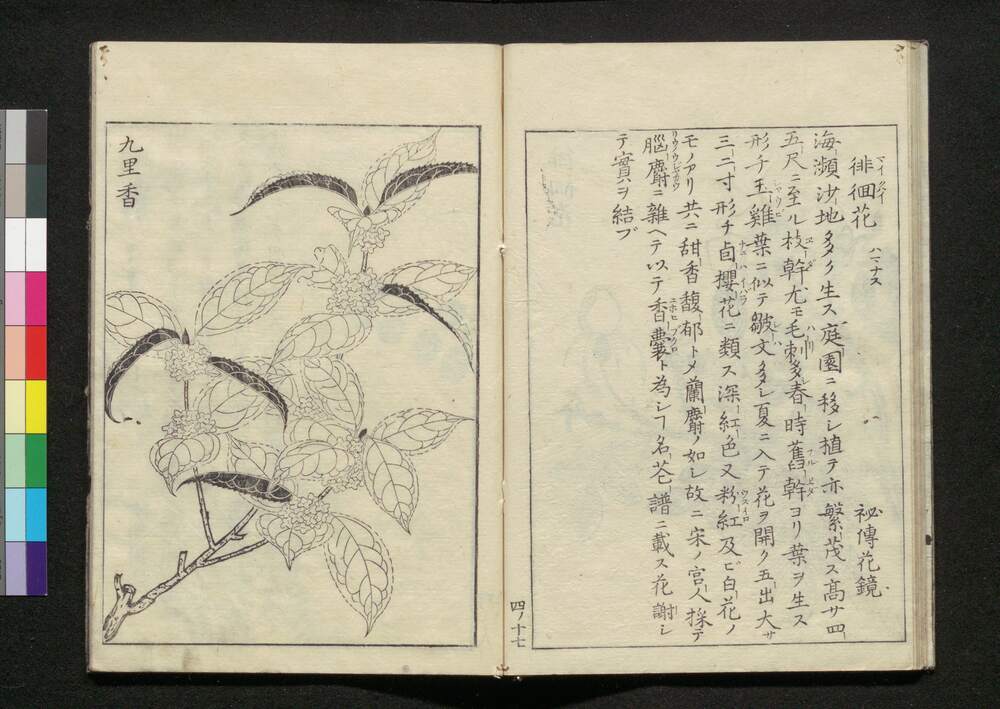 徘徊花 ハマナス 祕傳花鏡
海瀕沙地多ク生ス庭園ニ移シ植テ亦繁茂ス髙サ四
五尺ニ至ル枝幹尤モ毛刺多シ春時舊幹ヨリ葉ヲ生ス
形チ玉雞葉ニ似テ皺文多シ夏ニ入テ花ヲ開ク五出大サ
三二寸形チ卣櫻花ニ類ス深紅色又粉紅及ビ白花ノ
モノアリ共ニ甜香馥郁トメ蘭麝ノ如シ故ニ宋ノ宮人採テ
腦麝ニ雜ヘテ以テ香囊ト為シヿ名花譜ニ載ス花謝シ
テ實ヲ結ブ
四ノ十七
九里香